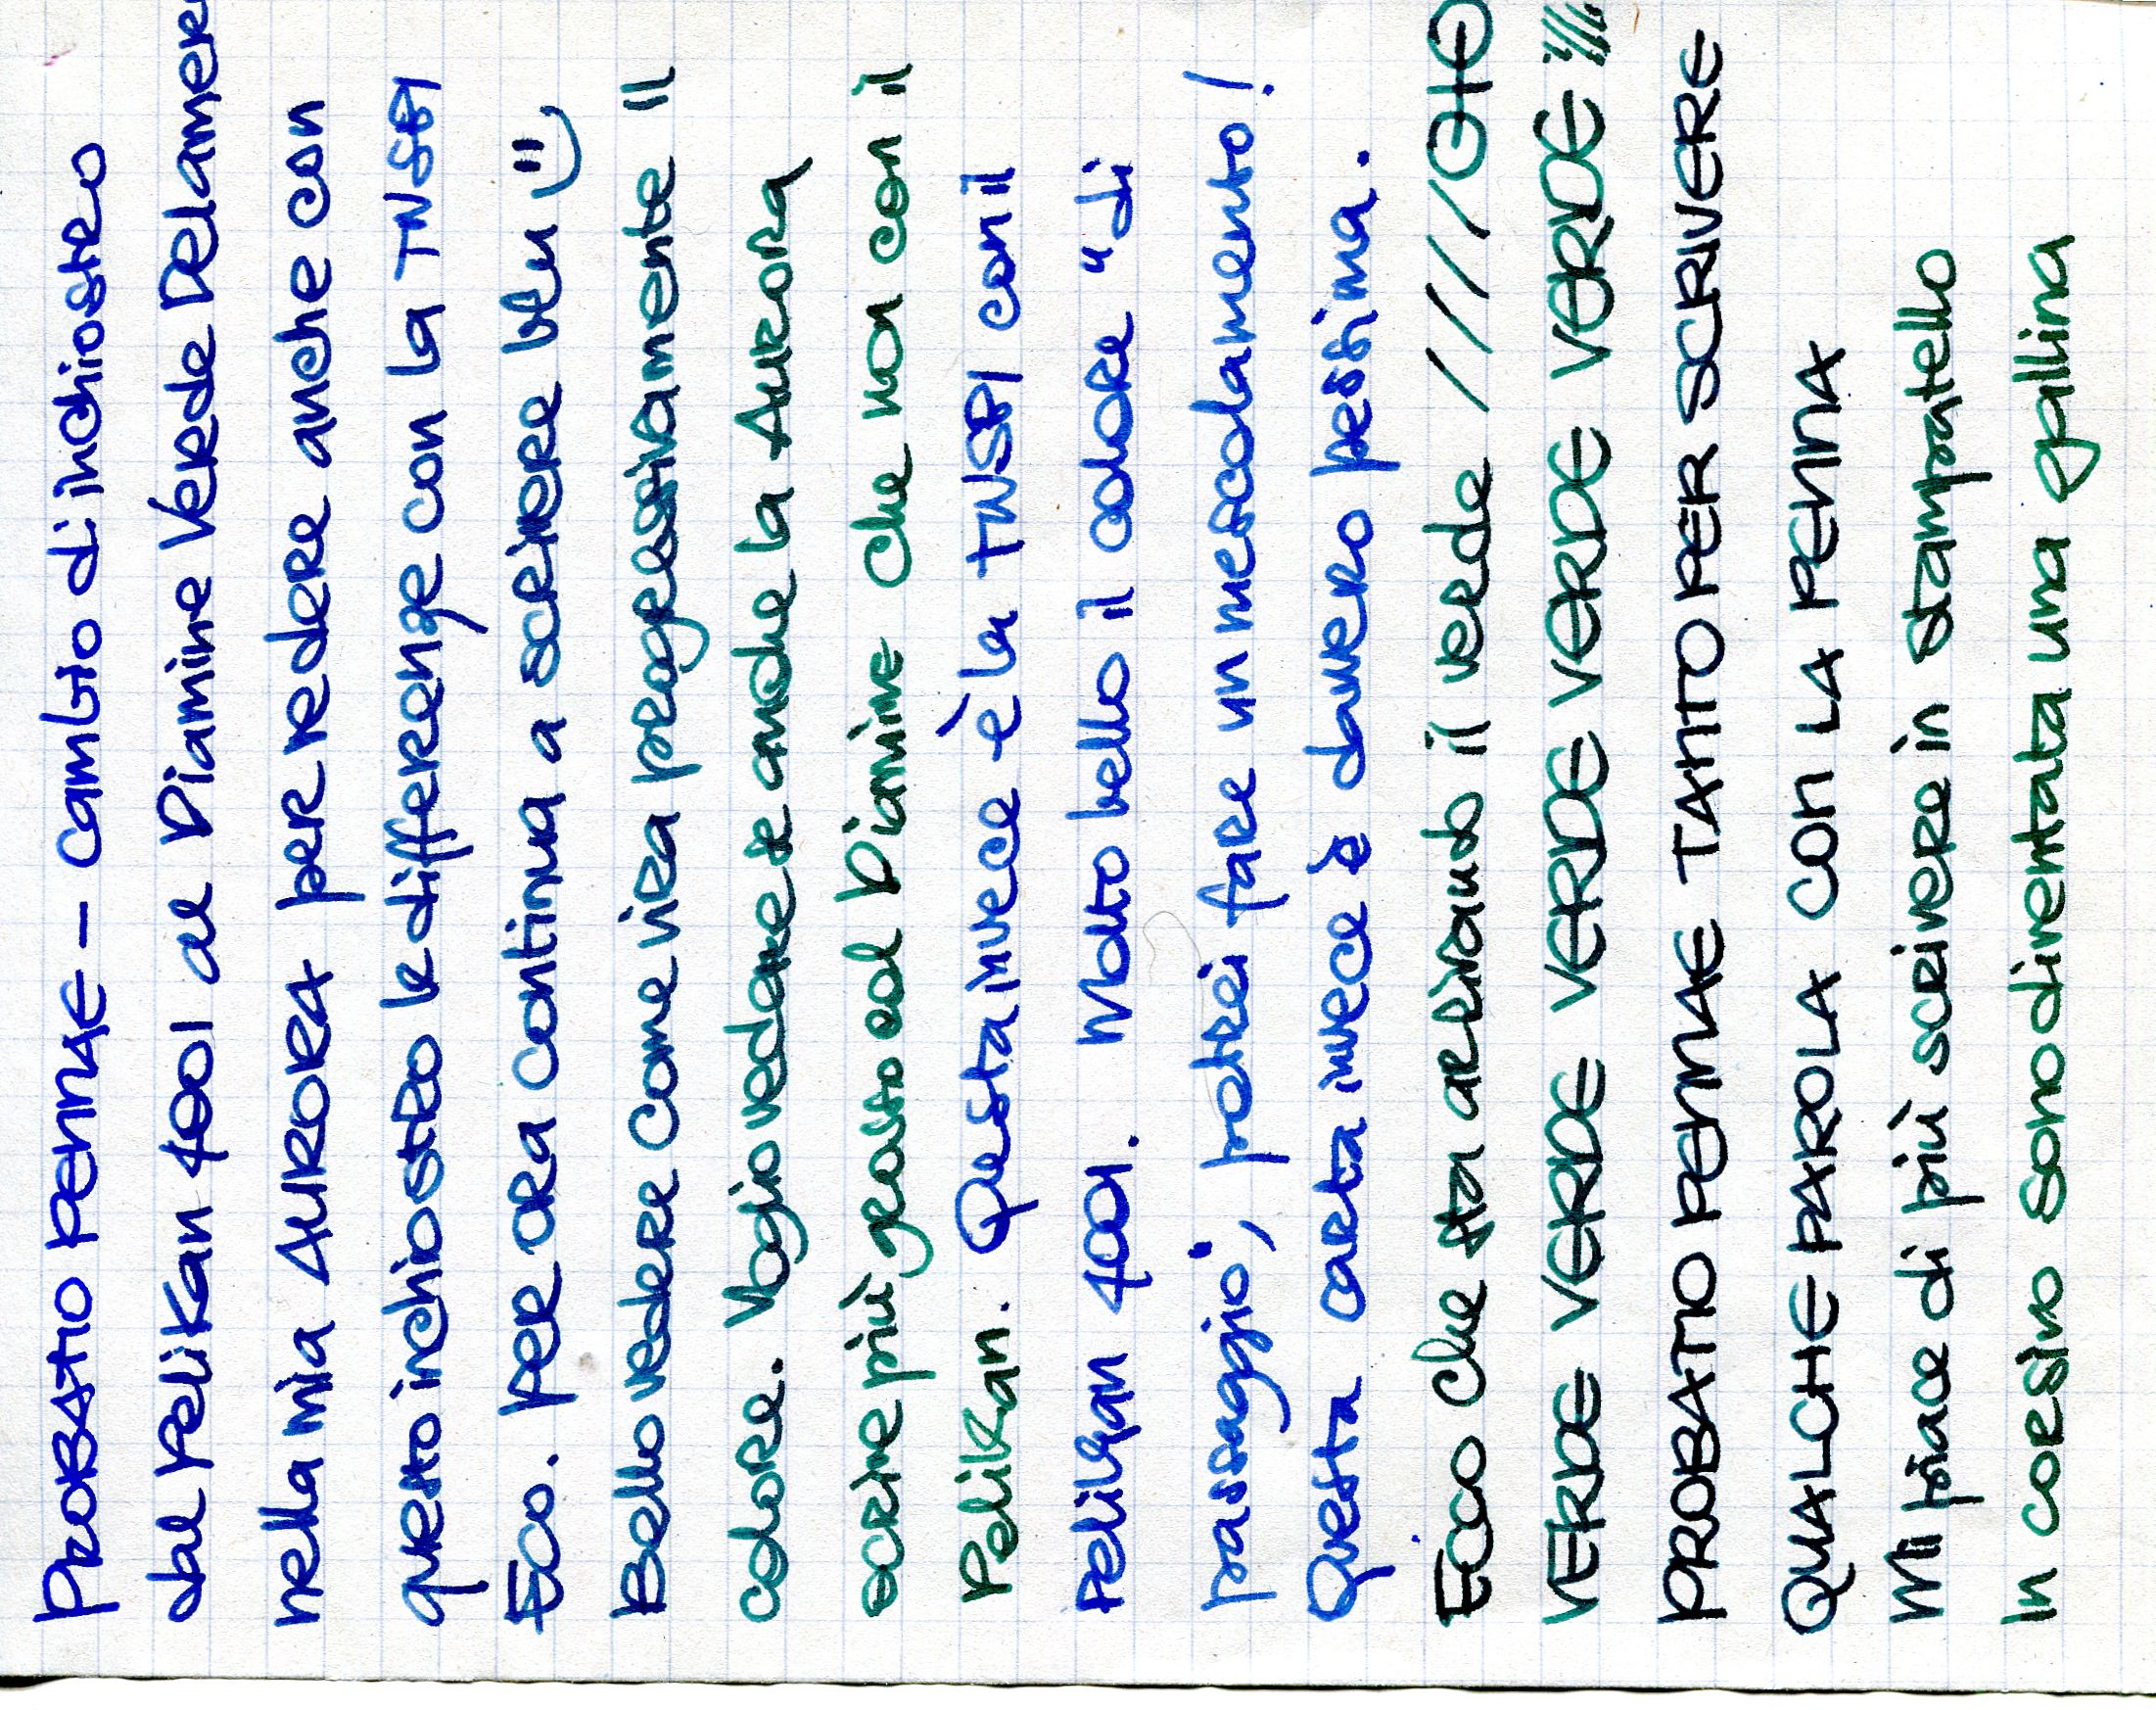 PROBATIO PENNAE - Cambio di inchiostro
dal Pelikan 4001 al Diamine Verde Delamere
nella mia AURORA per vedere anche con
questo inchiostro le differenze con la TWSBI
Eco. Per ora continua a scrivere blu :)
Bello vedere come vira progressivamente il
colore. Voglio vedere se anche la Aurora
scrive più grosso col Diamine che non con il
Pelikan. Questa invece è la TWSBI con il
Pelikan 4001. Molto bello il colore "di
passaggio", potrei fare un mescolamento!
Questa carta invece è davvero pessima.
Ecco che sta arrivando il verde ////
VERDE VERDE VERDE VERDE VERDE VERDE
PROBATIO PENNAE TANTO PER SCRIVERE
QUALCHE PAROLA CON LA PENNA
Mi piace di più scrivere in stampatello
In corsivo sono diventata una gallina